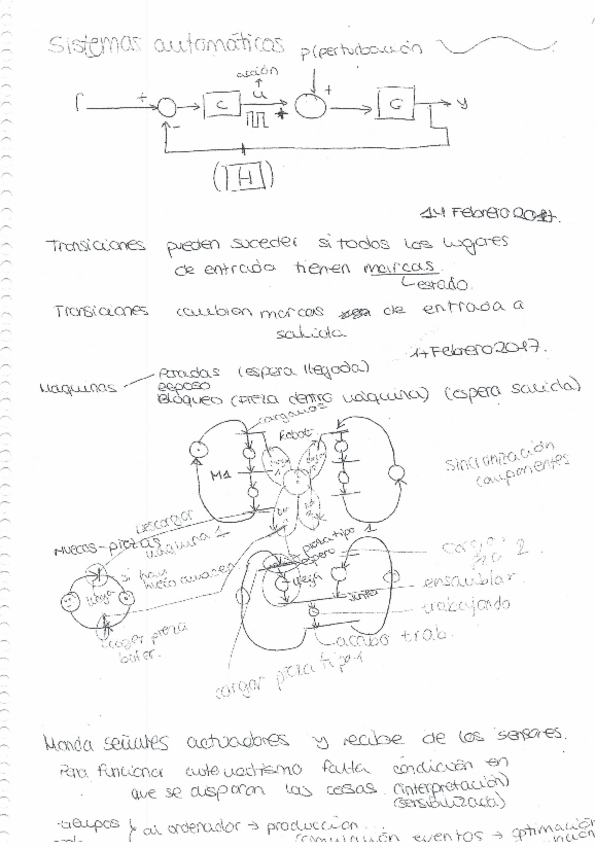 Sistemas automáticos p(perturbación
acción
r + C u + + G y
-
(H)
14 Febrero 2017.
Transiciones pueden suceder si todos los lugares
de entrada tienen marcas.
estado.
Transiciones cambian marcas de entrada a
salida
17 Febrero 2017.
Máquinas Paradas (espera llegada)
Bloqueo (pieza dentro máquina) (espera salida)
Robot
M1
sincronización
componentes
Descargar
máquina 1
Huecos-piezas
si hay
pieza tipo 1
espero
2
ensamblar
trabajando
acabo trab.
coger pieza
cargar pieza tipo 1
Manda señales actuadores y recibe de los sensores.
Para funcionar automatismo falta condición en
que se disparan las cosas. (interpretación)
(sensibilizada)
al ordenador → producción.
eventos → optimización